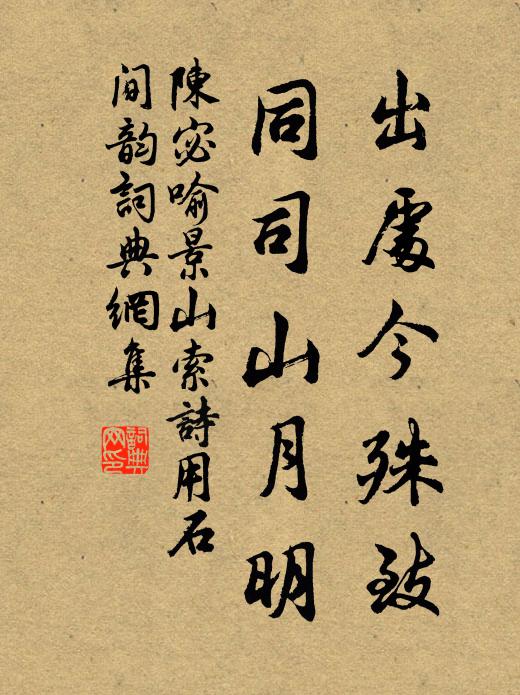 出處今殊致
同司山月明
陳宓喻景山索詩用石
間韵詞典網集
詞典網印